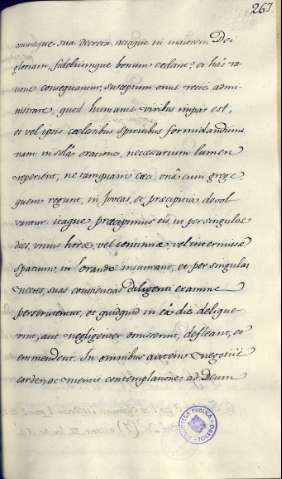 267
omniaque sua decreta, atque in maiorem Dei
gloriam, fideliumque bonum cedant; et hac ra
tione consequantur, susceptum onus recte admi
nistrare, quod humanis viribus impar est,
et vel ipsis coelestibus spiritibus formidandum
nam in sola oratione, necessarium lumen
reperient, ne tamquam caeci, una cum grege
quem regunt, in foveas, et praecipitia devol
vantur. itaque praecipimus eis, ut per singulos
dies, unius horae, vel continuae vel intermissae
spatium, in orando insumant, et per singulas
noctes, suas conscientias diligenti examine
perscrutentur, et quidquid in ea die delique
rint, aut negligenter omiserint, defleant, et
emendent. In omnibus autem negotiis
mentis contemplationes ad Deum
BIBLIOTECA PUBLICA
TOLEDO